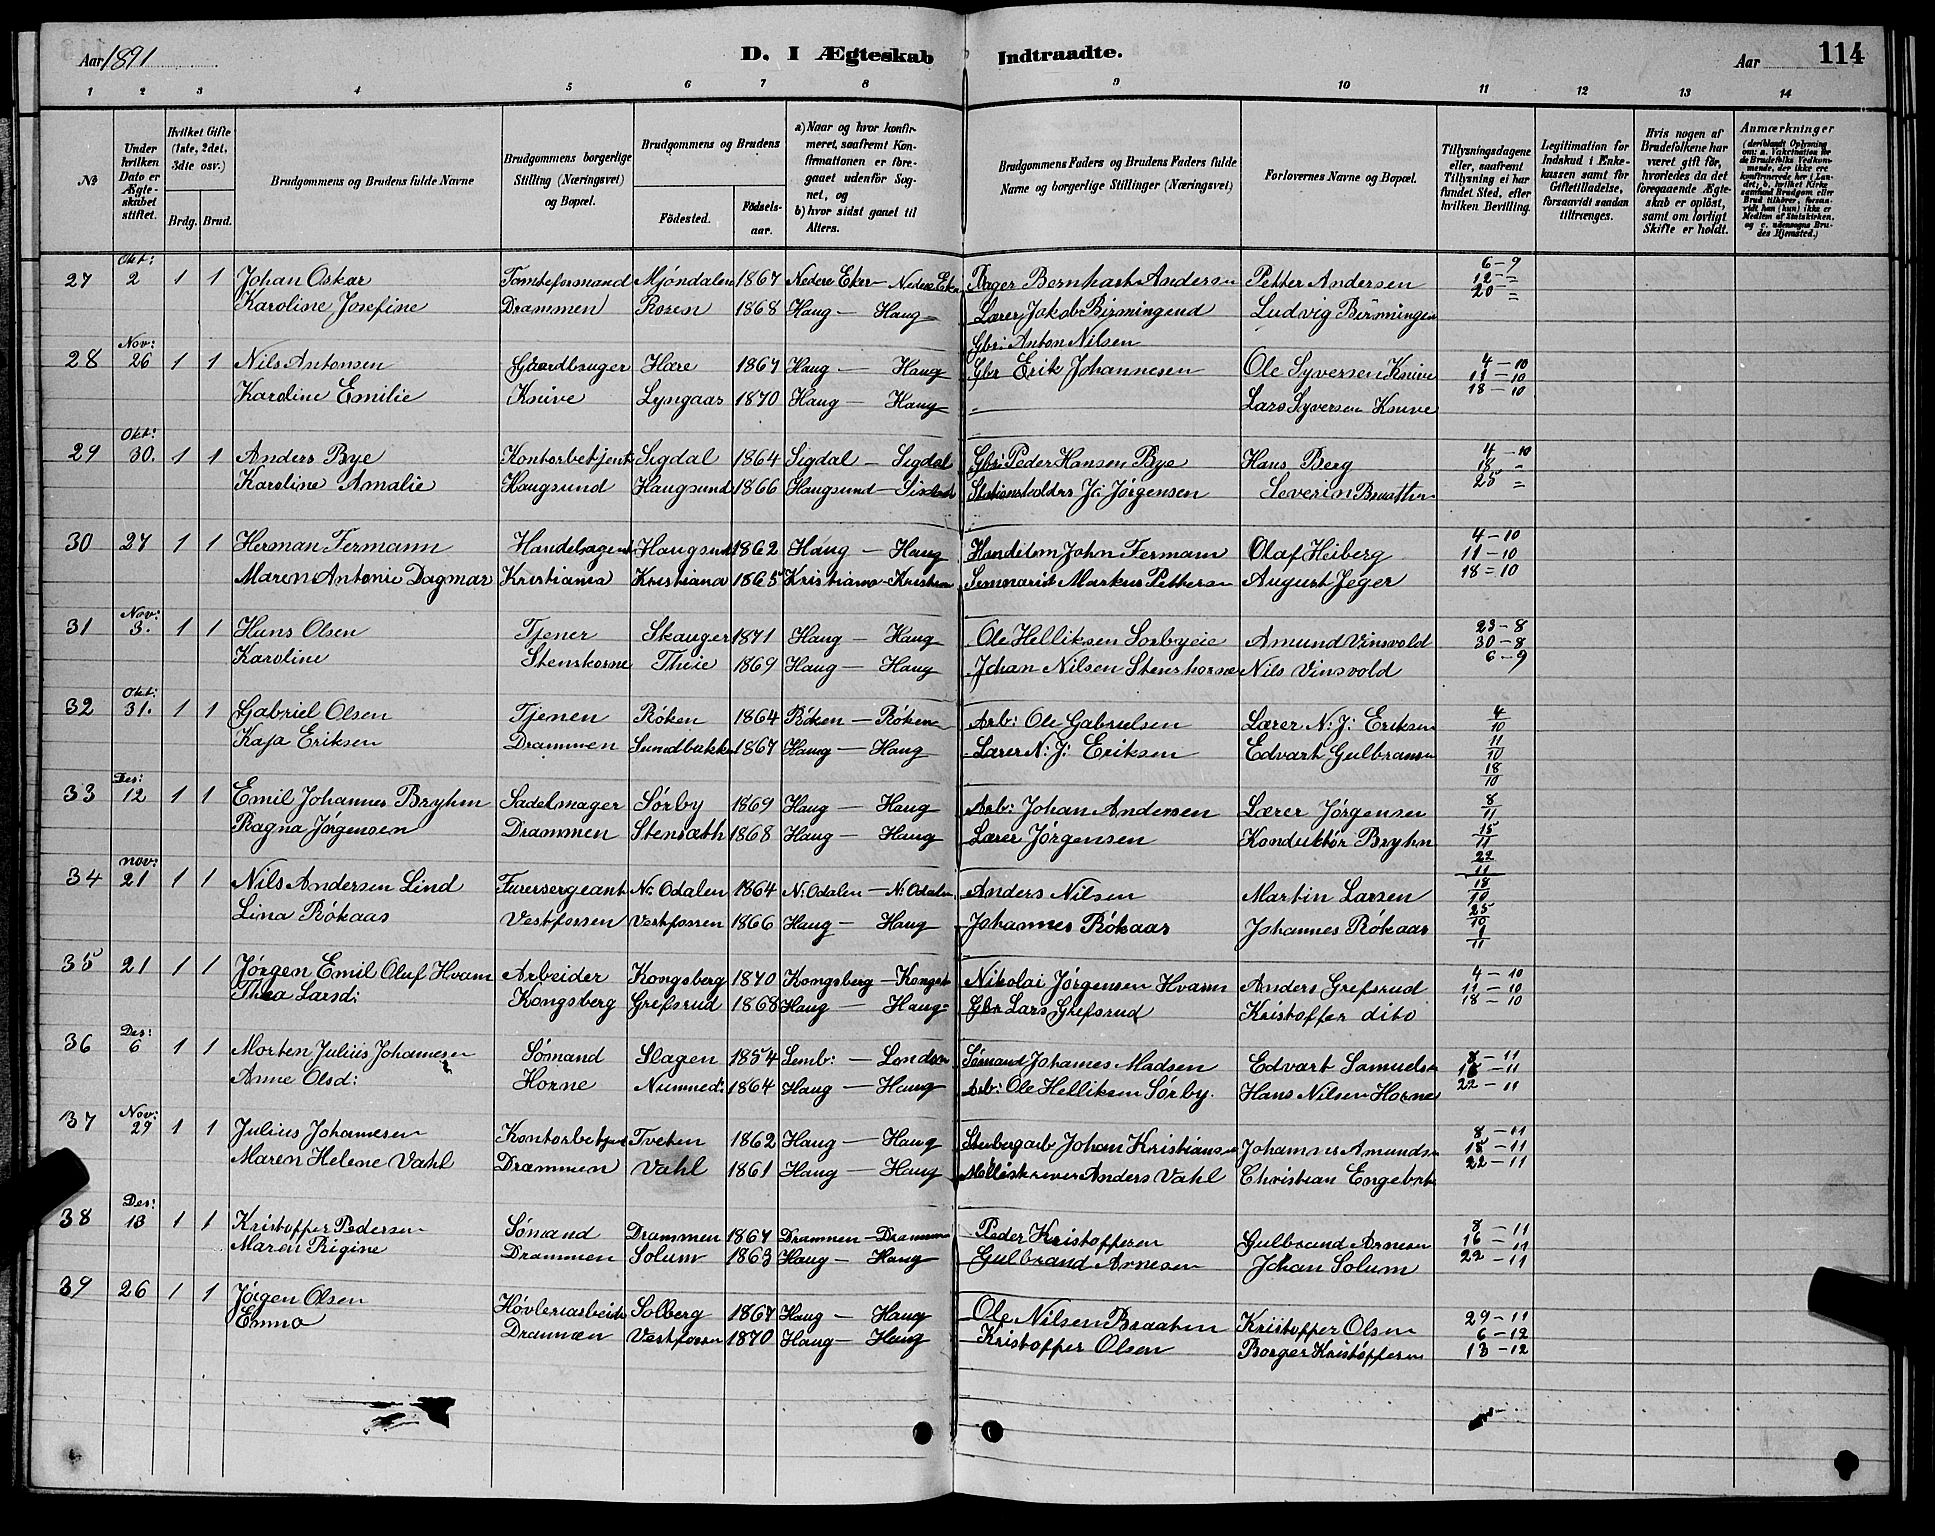 Aar 1891
D. I Ægteskab Indtraadte.
Aar 114
1 2 3 4 5 6 7 8 9 10 11 12 13 14
№
Under hvilken Dato er Ægteskabet stiftet.
Hvilket Gifte (1ste, 2det, 3die osv.)
Brdg. Brud.
Brudgommens og Brudens fulde Navne
Brudgommens borgerlige Stilling (Næringsvei) og Bopæl.
Brudgommens og Brudens
Fødested.
Fødselsaar.
a) Naar og hvor konfirmeret, saafremt Konfirmationen er foregaaet udenfor Sognet, og
b) hvor sidst gaaet til Alters.
Brudgommens Faders og Brudens Faders fulde Navne og borgerlige Stillinger (Næringsvei)
Forlovernes Navne og Bopæl.
Tillysningsdagene eller, saafremt Tillysning ei har fundet Sted, efter hvilken Bevilling.
Legitimation for Indskud i Enkekassen samt for Giftetilladelse, forsaavidt saadan tiltrænges.
Hvis nogen af Brudefolkene har været gift før, hvorledes da det foregaaende Ægteskab er opløst, samt om lovligt Skifte er holdt.
Anmærkninger (deriblandt Oplysning om: a. Vakcination for de Brudefolks Vedkommende, der ikke ere konfirmerede her i Landet; b. hvilket Kirkesamfund Brudgom eller Brud tilhører, forsaavidt han (hun) ikke er Medlem af Statskirken, og c. udensogns Brudes Hjemsted.)
27 Okt: 2 1 1 Johan Oskar Tomteformand Mjøndalen 1867 Nedere Eker — Nedere Eker Bager Bernhart Andersen Petter Andersen 6-9 12-"
Karoline Josefine Drammen Rosen 1868 Haug — Haug Lærer Jakob Birmingend Ludvig Birmingen 20 =
Gbr: Anton Nilsen
28 Nov: 26 1 1 Nils Antonsen Gaardbruger Hære 1867 Haug — Haug Gbr Erik Johannesen Ole Syversen Knive 4-10 11-10
Karoline Emilie Knive Lyngaas 1870 Haug — Haug Lars Syversen Knive 18-10
29 Okt: 30. 1 1 Anders Bye Kontorbetjent Sigdal 1864 Sigdal — Sigdal Gbr: Peder Hansen Bye Hans Berg 4-10 18 "
Karoline Amalie Haugsund Haugsund 1866 Haugsund — Stationsholder J: Jørgensen Severin 25 =
30 27 1 1 Herman Fermann Handelsagent Haugsund 1862 Haug — Haug John Fermann Olaf Heiberg 4-10 11-10
Maren Antonie Dagmar Kristiania Kristiana 1865 Kristiania - Kristian Seminarist Markus Pettersen August Jeger 18=10
31 Nov: 3. 1 1 Hans Olsen Tjener Skauger 1871 Haug — Haug Ole Helliksen Sorbyeie Amund Vinsvold 23-8 30-8
Karoline Stenskorne Theie 1869 Haug — Haug Johan Nilsen Stenshorne Nils Vinsvold 6-9
32 Okt: 31. 1 1 Gabriel Olsen Tjenen Røken 1864 Røken — Røken Arb: Ole Gabrielsen Lærer N: J: Eriksen 4/10
Kaja Eriksen Drammen Sundbakke 1867 Haug — Haug Lærer N: J: Eriksen Edvart Gulbransen 11/10 18/10
33 Des: 12 1 1 Emil Johannes Bryhn Sadelmager Sørby 1869 Haug — Haug Arb: Johan Andersen Lærer Jørgensen 8/11
Ragna Jørgensen Drammen Stensæth 1868 Haug — Haug Lærer Jørgensen Konduktør Bryhn 15/11 22/11
34 nov: 21 1 1 Nils Andersen Lind Furersergeant N: Odalen 1864 N: Odalen — N: Odalen Anders Nilsen Martin Larsen 18/10
Lina Røkaas Vestfossen Vestfossen 1866 Haug — Haug Johannes Røkaas Johannes Røkaas 25/10 1/11
35 21 1 1 Jørgen Emil Oluf Hvam Arbeider Kongsberg 1870 Kongsberg — Kongsb Nikolai Jørgensen Hvam Anders Grefsrud 4-10 11-10
Thea Larsd: Kongsberg Grefsrud 1868 Haug — Haug Gbr Lars Grefsrud Kristoffer dito 18-10
36 Des: 6 1 1 Morten Julius Johannesen Sømand Slagen 1854 Semb: — London Sømand Johannes Madsen Edvart Samuelsen 8-11 15-11
Anne Olsd: Horne Nummed: 1864 Haug — Haug Arb: Ole Helliksen Sørby. Hans Nilsen Horne 22-11
37 Nov: 29 1 1 Julius Johannesen Kontorbetjent Tveten 1862 Haug — Haug Stenbergarb Johan Kristiansen Johannes Amundsen 8-11 15-11
Maren Helene Vahl Drammen Vahl 1861 Haug — Haug Anders Vahl Christian Engebrt 22-11
38 Des: 13 1 1 Kristoffer Pedersen Sømand Drammen 1867 Drammen — Drammen Peder Kristoffersen Gulbrand Arnesen 8-11 16-11
Maren Rigine Drammen Solum 1863 Haug — Haug Gulbrand Arnesen Johan Solum 22-11
39 26 1 1 Jørgen Olsen Høvleriarbeider Solberg 1867 Haug — Haug Ole Nilsen Braaten Kristoffer Olsen 29-11 6-12
Emma Drammen Vestfossen 1870 Haug — Haug Kristoffer Olsen Borger Kristoffersen 13-12